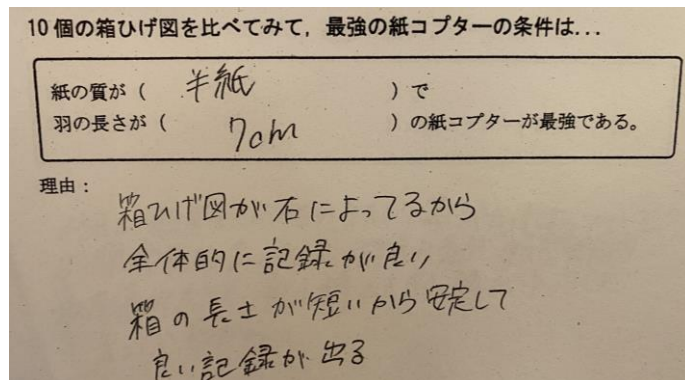 10個の箱ひげ図を比べてみて，最強の紙コプターの条件は...
紙の質が（ 半紙 ）で
羽の長さが（ 7cm ）の紙コプターが最強である。
理由：
箱ひげ図が右によってるから
全体的に記録が良い
箱の長さが短いから安定して
良い記録が出る